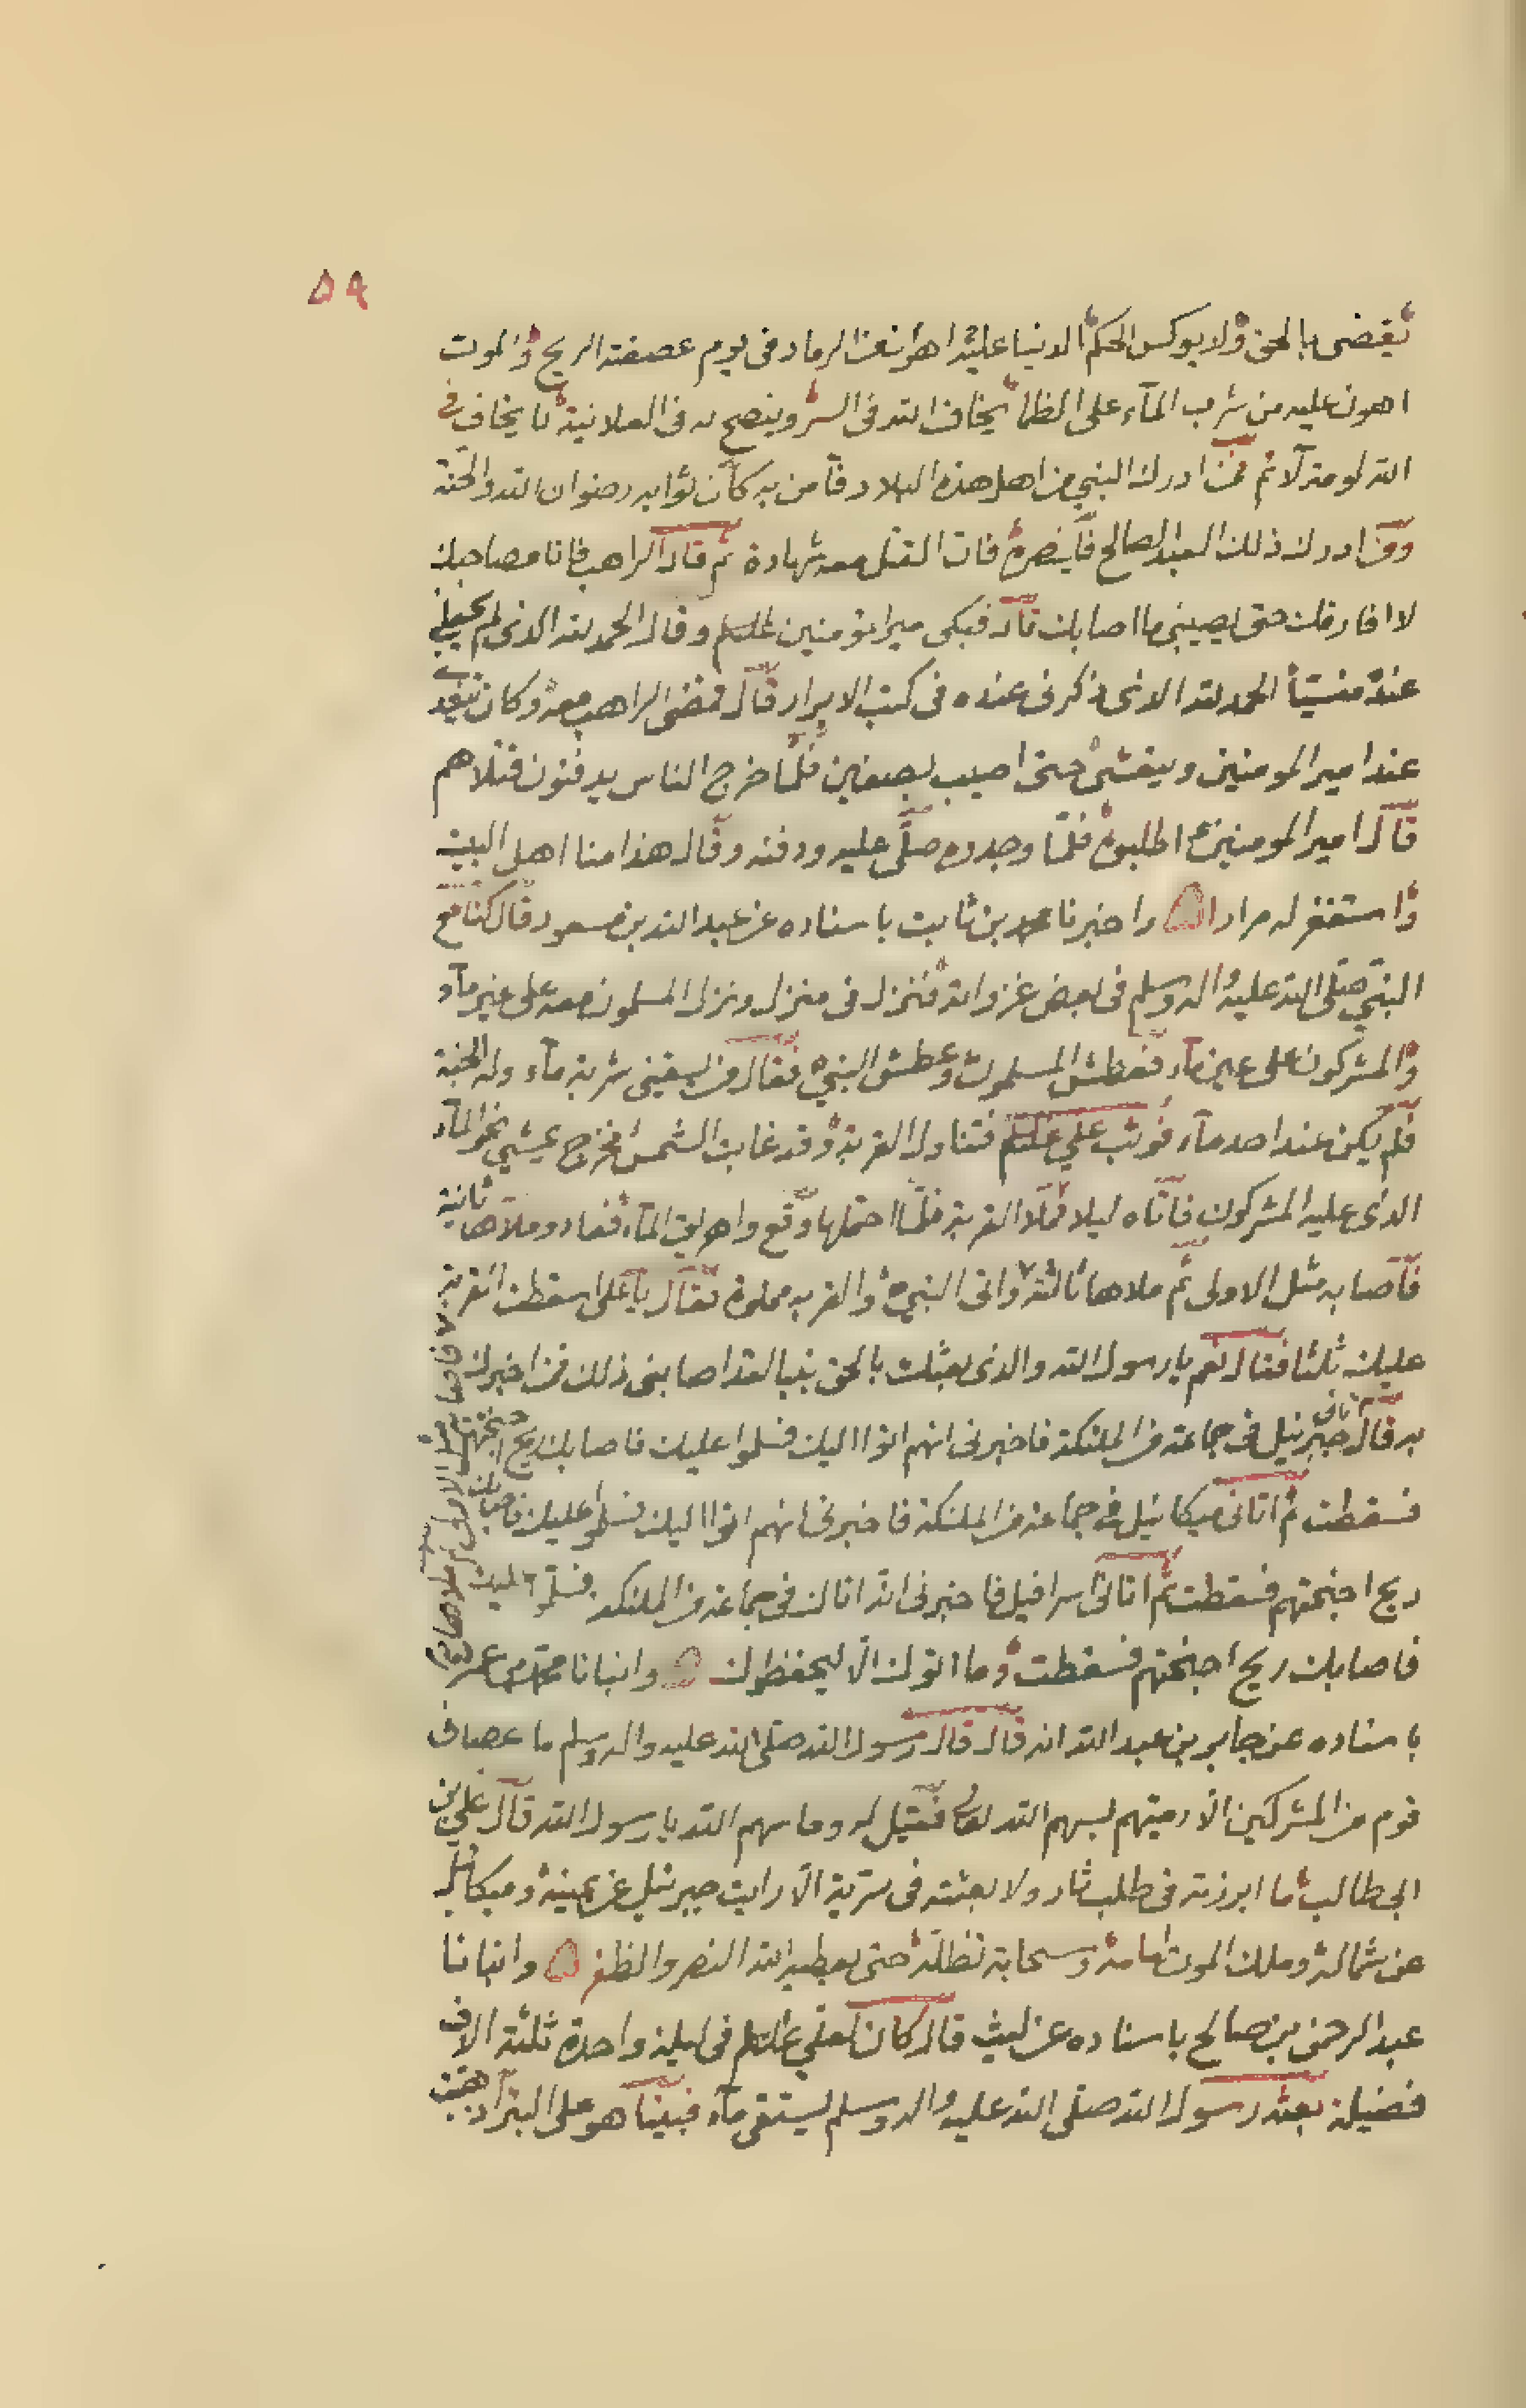 ٥٩
يقضى بالحق ولا يوكس الحكم الدنيا عليه اهون من الرماد فى يوم عصفت الريح والموت
اهون عليه من شرب المآء على الظما يخاف الله فى السر وينصح له فى العلانية لا يخاف فى
الله لومة لآئم فمن ادرك النبي من اهل هذه البلاد فآمن به كان ثوابه رضوان الله والجنة
ومن ادرك ذلك العبد الصالح فلينصره فان القتل معه شهادة ثم قال الراهب فانا مصاحبك
لا افارقك حتى يصيبنى ما اصابك قال فبكى امير المؤمنين عليه السلم وقال الحمد لله الذى لم يجعلنى
عنده منسيّا الحمد لله الذى ذكرنى عنده فى كتب الابرار قال فمضى الراهب معه وكان يتغدى
عند امير المومنين ويتعشى حتى اصيب بصفين فلما خرج الناس يدفنون قتلاهم
قال امير المومنين ع اطلبوه فلمّا وجدوه صلّى عليه ودفنه وقال هذا منا اهل البيت
واستغفر له مرارا واخبرنا محمد بن ثابت باسناده عن عبد الله بن مسعود قال كنا مع
النبي صلى الله عليه واله وسلم فى بعض غزواته فنزل فى منزل ونزل المسلمون معه على غير مآء
والمشركون على عين مآء فعطش المسلمون وعطش النبي فقال من يسقينى شربة مآء وله الجنة
فلم يكن عند احد مآء فوثب علي عليه السلم فتناول القربة وقد غابت الشمس فخرج يمشي نحو المآء
الذى عليه المشركون فاتاه ليلا فملا القربة فلمّا احتملها وقع واهريق المآء فعاد وملاها ثانية
فاصابه مثل الاولى ثم ملاها ثالثة واتى النبي والقربه مملوة فقال يا على اسقطت القربة
عليك ثلثا فقال نعم يا رسول الله والذى بعثك بالحق نبيا لقد اصابنى ذلك فمن اخبرك
به قال اتانى جبرئيل فى جماعة من الملئكة فاخبرنى انهم اتوا اليك فسلموا عليك فاصابك ريح اجنحتهم
فسقطت ثم اتانى ميكائيل فى جماعة من الملئكة فاخبرنى انهم اتوا اليك فسلموا عليك فاصابك
ريح اجنحتهم فسقطت ثم اتانى اسرافيل فاخبرنى انه اتاك فى جماعة من الملئكه فسلموا عليك
فاصابك ريح اجنحتهم فسقطت وما اتوك الا ليحفظوك وانبانا محمد بن عمر
باسناده عن جابر بن عبد الله انه قال قال رسول الله صلى الله عليه واله وسلم ما عصانى
قوم من المشركين الا رميتهم بسهم الله تعالى فقيل له وما سهم الله يا رسول الله قال علي بن
ابى طالب ما ابرزته فى طلب ثار ولا بعثته فى سرية الا رايت جبرئيل عن يمينه وميكائيل
عن شماله وملك الموت امامه وسحابة تظلّه حتى يعطيه الله النصر والظفر وانبانا
عبد الرحمن بن صالح باسناده عن ليث قال كان لعلي عليه السلم فى ليلة واحدة ثلثة الاف
فضيلة بعثه رسول الله صلى الله عليه واله وسلم يستقى مآء فبينا هو على البئر اذ هبت